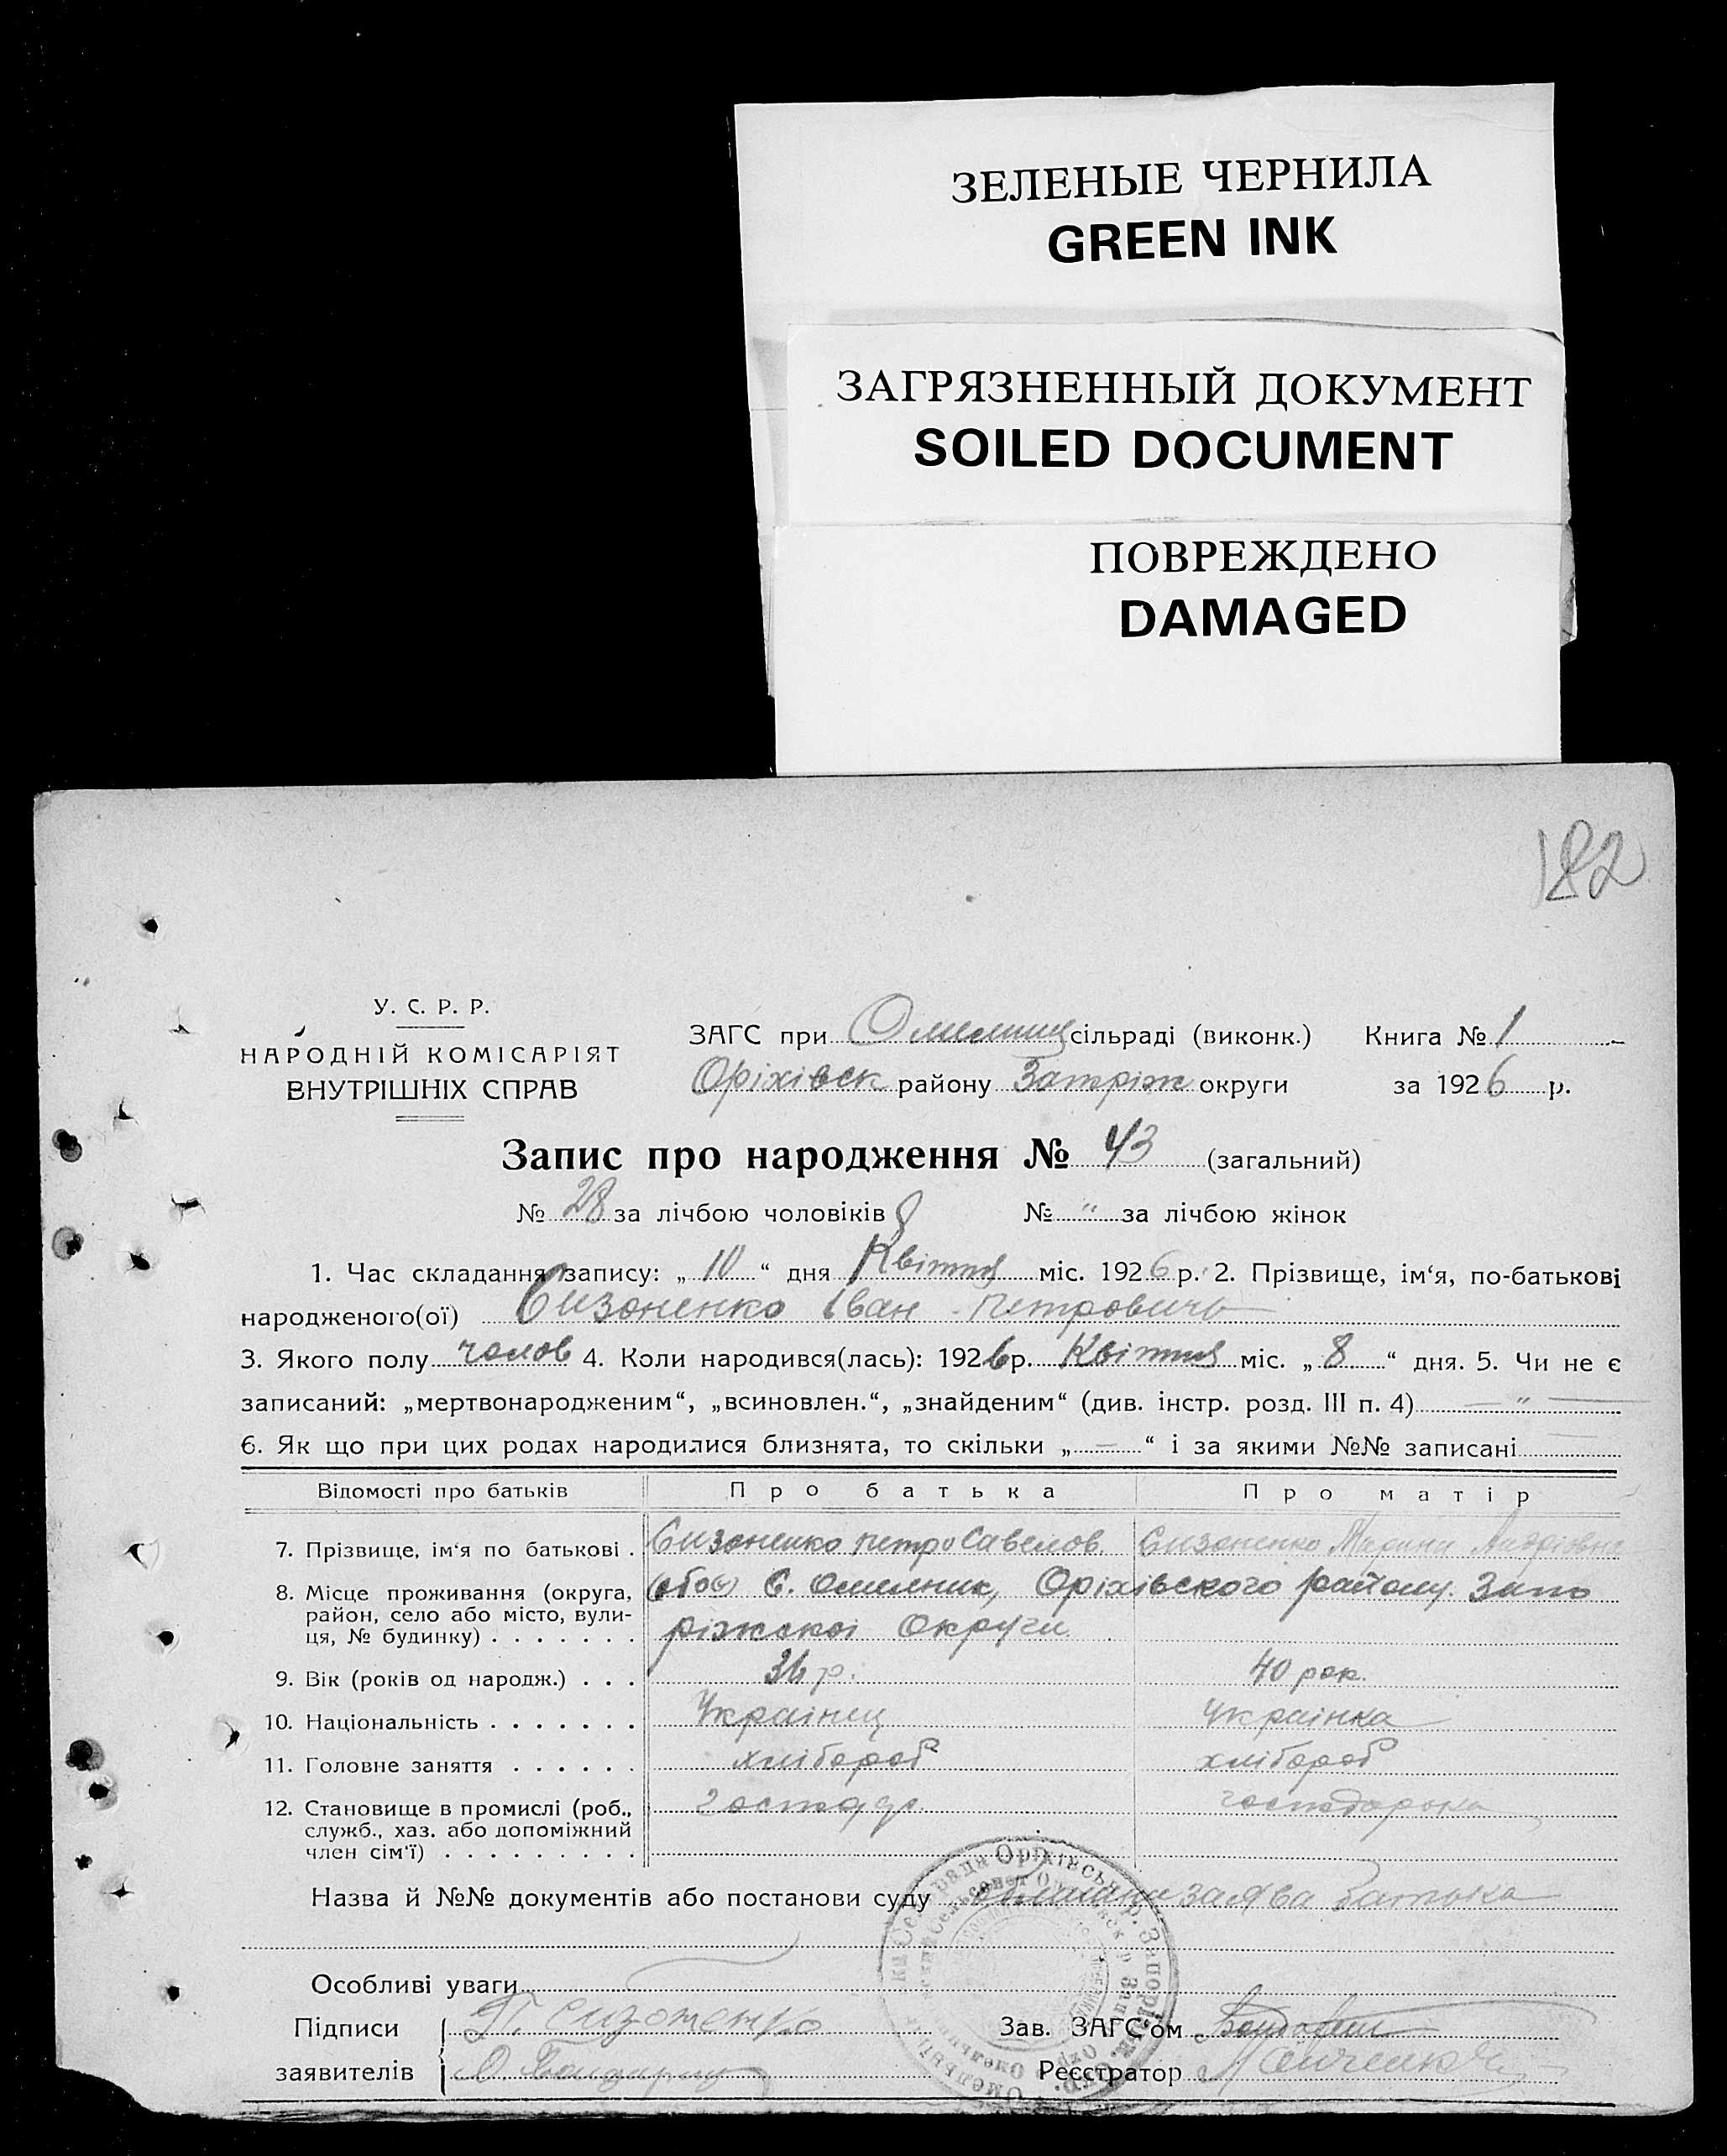 ЗЕЛЕНЫЕ ЧЕРНИЛА
GREEN INK
ЗАГРЯЗНЕННЫЙ ДОКУМЕНТ
SOILED DOCUMENT
ПОВРЕЖДЕНО
DAMAGED
182
У. С. Р. Р.
НАРОДНІЙ КОМІСАРІЯТ
ВНУТРІШНІХ СПРАВ
ЗАГС при сільраді (виконк.) Книга № 1
Оріхівськ району Запоріж округи за 1926 р.
Запис про народження № 43 (загальний)
№ 28 за лічбою чоловіків № " за лічбою жінок
1. Час складання запису: „ 10 “ дня Квітня міс. 1926 р. 2. Прізвище, ім‘я, по-батькові
народженого(ої) Сизоненко Іван Петровичь
3. Якого полу чолов 4. Коли народився(лась): 1926 р. Квітня міс. „ 8 “ дня. 5. Чи не є
записаний: „мертвонародженим“, „всиновлен.“, „знайденим“ (див. інстр. розд. III п. 4) — " —
6. Як що при цих родах народилися близнята, то скільки „ — “ і за якими №№ записані
Відомості про батьків Про батька Про матір
7. Прізвище, ім‘я по батькові . Сизоненко Петро Савелов. Сизоненко Марина Андріовна
8. Місце проживання (округа, обоє С. Омелник, Оріхівского району Запо
район, село або місто, вули-
ця, № будинку) . . . . . . . ріжскоі Округи
9. Вік (років од народж.) . . . 36 р. 40 рок.
10. Національність . . . . . . . Украінец Украінка
11. Головне заняття . . . . . . хлібороб хлібороб
12. Становище в промислі (роб., господар господарька
служб., хаз. або допоміжний
член сім‘ї) . . . . . . . . .
Назва й №№ документів або постанови суду заява батька
Особливі уваги
Підписи П. Сизоненко Зав. ЗАГС‘ом
заявителів О. Реєстратор